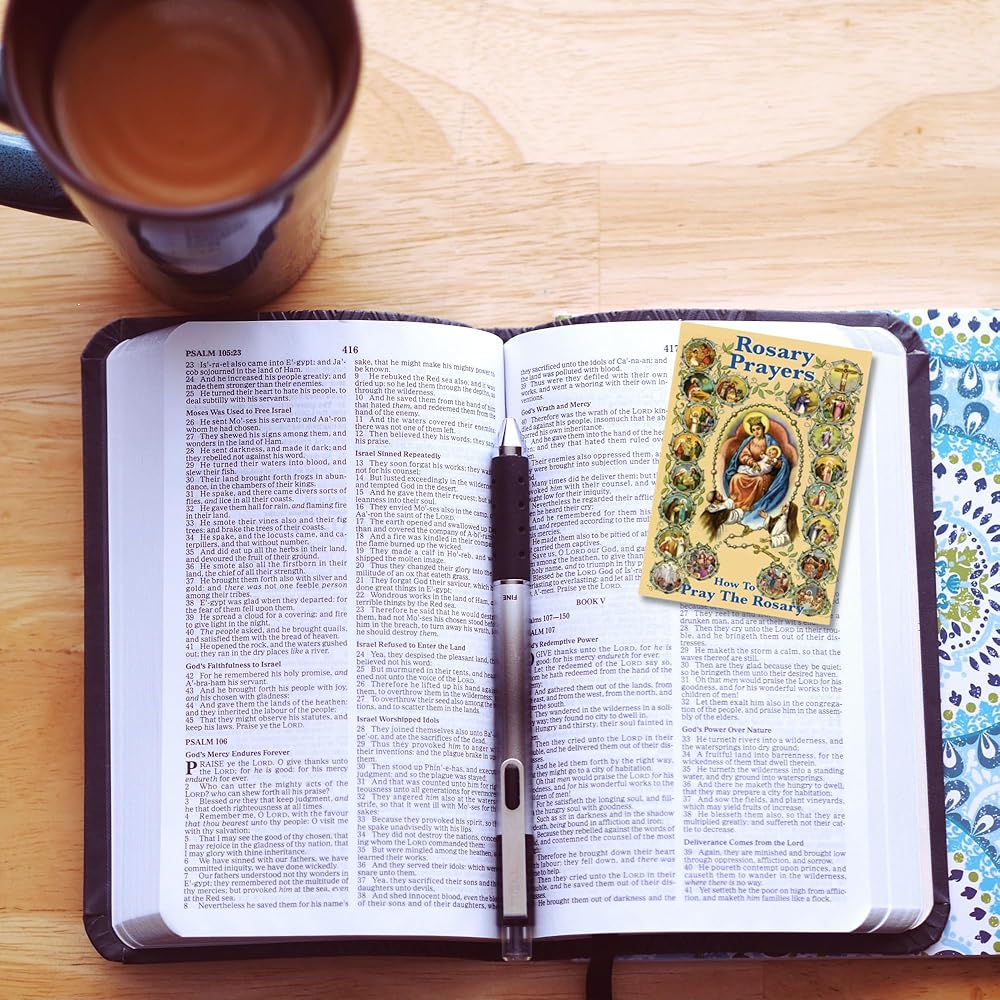 PSALM 105:23
416
23 Is'-ra-el also came into E'-gypt; and Ja'-
cob sojourned in the land of Ham.
24 And he increased his people greatly; and
made them stronger than their enemies.
25 He turned their heart to hate his people, to
deal subtilly with his servants.
Moses Was Used to Free Israel
26 He sent Mo'-ses his servant; and Aa'-ron
whom he had chosen.
27 They shewed his signs among them, and
wonders in the land of Ham.
28 He sent darkness, and made it dark; and
they rebelled not against his word.
29 He turned their waters into blood, and
slew their fish.
30 Their land brought forth frogs in abun-
dance, in the chambers of their kings.
31 He spake, and there came divers sorts of
flies, and lice in all their coasts.
32 He gave them hail for rain, and flaming fire
in their land.
33 He smote their vines also and their fig
trees; and brake the trees of their coasts.
34 He spake, and the locusts came, and ca-
terpillars, and that without number,
35 And did eat up all the herbs in their land,
and devoured the fruit of their ground.
36 He smote also all the firstborn in their
land, the chief of all their strength.
37 He brought them forth also with silver and
gold: and there was not one feeble person
among their tribes.
38 E'-gypt was glad when they departed: for
the fear of them fell upon them.
39 He spread a cloud for a covering; and fire
to give light in the night.
40 The people asked, and he brought quails,
and satisfied them with the bread of heaven.
41 He opened the rock, and the waters gushed
out; they ran in the dry places like a river.
God's Faithfulness to Israel
42 For he remembered his holy promise, and
A'-bra-ham his servant.
43 And he brought forth his people with joy,
and his chosen with gladness:
44 And gave them the lands of the heathen:
and they inherited the labour of the people;
45 That they might observe his statutes, and
keep his laws. Praise ye the LORD.
PSALM 106
God's Mercy Endures Forever
PRAISE ye the LORD. O give thanks unto
the LORD; for he is good: for his mercy
endureth for ever.
2 Who can utter the mighty acts of the
LORD? who can shew forth all his praise?
3 Blessed are they that keep judgment, and
he that doeth righteousness at all times.
4 Remember me, O LORD, with the favour
that thou bearest unto thy people: O visit me
with thy salvation;
5 That I may see the good of thy chosen, that
I may rejoice in the gladness of thy nation, that
I may glory with thine inheritance.
6 We have sinned with our fathers, we have
committed iniquity, we have done wickedly.
7 Our fathers understood not thy wonders in
E'-gypt; they remembered not the multitude of
thy mercies; but provoked him at the sea, even
at the Red sea.
8 Nevertheless he saved them for his name's
sake, that he might make his mighty power
be known.
9 He rebuked the Red sea also, and it was
dried up: so he led them through the depths, as
through the wilderness.
10 And he saved them from the hand of him
that hated them, and redeemed them from the
hand of the enemy.
11 And the waters covered their enemies:
there was not one of them left.
12 Then believed they his words; they sang
his praise.
Israel Sinned Repeatedly
13 They soon forgat his works; they waited
not for his counsel:
14 But lusted exceedingly in the wilderness,
and tempted God in the desert.
15 And he gave them their request; but sent
leanness into their soul.
16 They envied Mo'-ses also in the camp, and
Aa'-ron the saint of the LORD.
17 The earth opened and swallowed up
and covered the company of A-bi'-ram.
18 And a fire was kindled in their
the flame burned up the wicked.
19 They made a calf in Ho'-reb, and
shipped the molten image.
20 Thus they changed their glory into the
militude of an ox that eateth grass.
21 They forgat God their saviour, which
done great things in E'-gypt;
22 Wondrous works in the land of Ham,
terrible things by the Red sea.
23 Therefore he said that he would destroy
them, had not Mo'-ses his chosen stood before
him in the breach, to turn away his wrath, lest
he should destroy them.
Israel Refused to Enter the Land
24 Yea, they despised the pleasant land,
believed not his word:
25 But murmured in their tents, and
ened not unto the voice of the LORD.
26 Therefore he lifted up his hand against
them, to overthrow them in the wilderness:
27 To overthrow their seed also among the
tions, and to scatter them in the lands.
Israel Worshipped Idols
28 They joined themselves also unto Ba'-al-
pe'-or, and ate the sacrifices of the dead.
29 Thus they provoked him to anger with
their inventions: and the plague brake in
them.
30 Then stood up Phin'-e-has, and executed
judgment: and so the plague was stayed.
31 And that was counted unto him for
teousness unto all generations for evermore.
32 They angered him also at the waters
strife, so that it went ill with Mo'-ses for
sakes:
33 Because they provoked his spirit, so
he spake unadvisedly with his lips.
34 They did not destroy the nations,
ing whom the LORD commanded them:
35 But were mingled among the heathen,
learned their works.
36 And they served their idols: which were
snare unto them.
37 Yea, they sacrificed their sons and
daughters unto devils,
38 And shed innocent blood, even the blood
of their sons and of their daughters, whom
417
they sacrificed unto the idols of Ca'-na-an: and
the land was polluted with blood.
39 Thus were they defiled with their own
works, and went a whoring with their own in-
God's Wrath and Mercy
40 Therefore was the wrath of the LORD kin-
against his people, insomuch that he
his own inheritance.
And he gave them into the hand of the
and they that hated them ruled over
Their enemies also oppressed them, and
were brought into subjection under
Many times did he deliver them; but they
provoked him with their counsel, and were
low for their iniquity.
Nevertheless he regarded their affliction,
he heard their cry:
And he remembered for them his
and repented according to the multitude
mercies.
He made them also to be pitied of all
carried them captives.
Save us, O LORD our God, and gather
among the heathen, to give thanks
name, and to triumph in thy praise.
Blessed be the LORD God of Is'-ra-el
everlasting to everlasting: and let all
A'-men. Praise ye the LORD.
BOOK V
Psalms 107—150
PSALM 107
Redemptive Power
GIVE thanks unto the LORD, for he is
good: for his mercy endureth for ever.
Let the redeemed of the LORD say so,
he hath redeemed from the hand of the
And gathered them out of the lands, from
east, and from the west, from the north, and
the south.
They wandered in the wilderness in a soli-
way; they found no city to dwell in.
Hungry and thirsty, their soul fainted in
Then they cried unto the LORD in their
and he delivered them out of their dis-
And he led them forth by the right way,
they might go to a city of habitation.
Oh that men would praise the LORD for his
goodness, and for his wonderful works to the
children of men!
For he satisfieth the longing soul, and fill-
the hungry soul with goodness.
Such as sit in darkness and in the shadow
death, being bound in affliction and iron;
Because they rebelled against the words of
and contemned the counsel of the most
Therefore he brought down their heart
labour; they fell down, and there was
to help.
Then they cried unto the LORD in their
and he saved them out of their dis-
He brought them out of darkness and the
27 They reel to and fro, and stagger like a
drunken man, and are at their wit's end.
28 Then they cry unto the LORD in their trou-
ble, and he bringeth them out of their dis-
tresses.
29 He maketh the storm a calm, so that the
waves thereof are still.
30 Then are they glad because they be quiet;
so he bringeth them unto their desired haven.
31 Oh that men would praise the LORD for his
goodness, and for his wonderful works to the
children of men!
32 Let them exalt him also in the congrega-
tion of the people, and praise him in the assem-
bly of the elders.
God's Power Over Nature
33 He turneth rivers into a wilderness, and
the watersprings into dry ground;
34 A fruitful land into barrenness, for the
wickedness of them that dwell therein.
35 He turneth the wilderness into a standing
water, and dry ground into watersprings.
36 And there he maketh the hungry to dwell,
that they may prepare a city for habitation;
37 And sow the fields, and plant vineyards,
which may yield fruits of increase.
38 He blesseth them also, so that they are
multiplied greatly; and suffereth not their cat-
tle to decrease.
Deliverance Comes from the Lord
39 Again, they are minished and brought low
through oppression, affliction, and sorrow.
40 He poureth contempt upon princes, and
causeth them to wander in the wilderness,
where there is no way.
41 Yet setteth he the poor on high from afflic-
tion, and maketh him families like a flock.
Rosary
Prayers
How To
Pray The Rosary
FINE